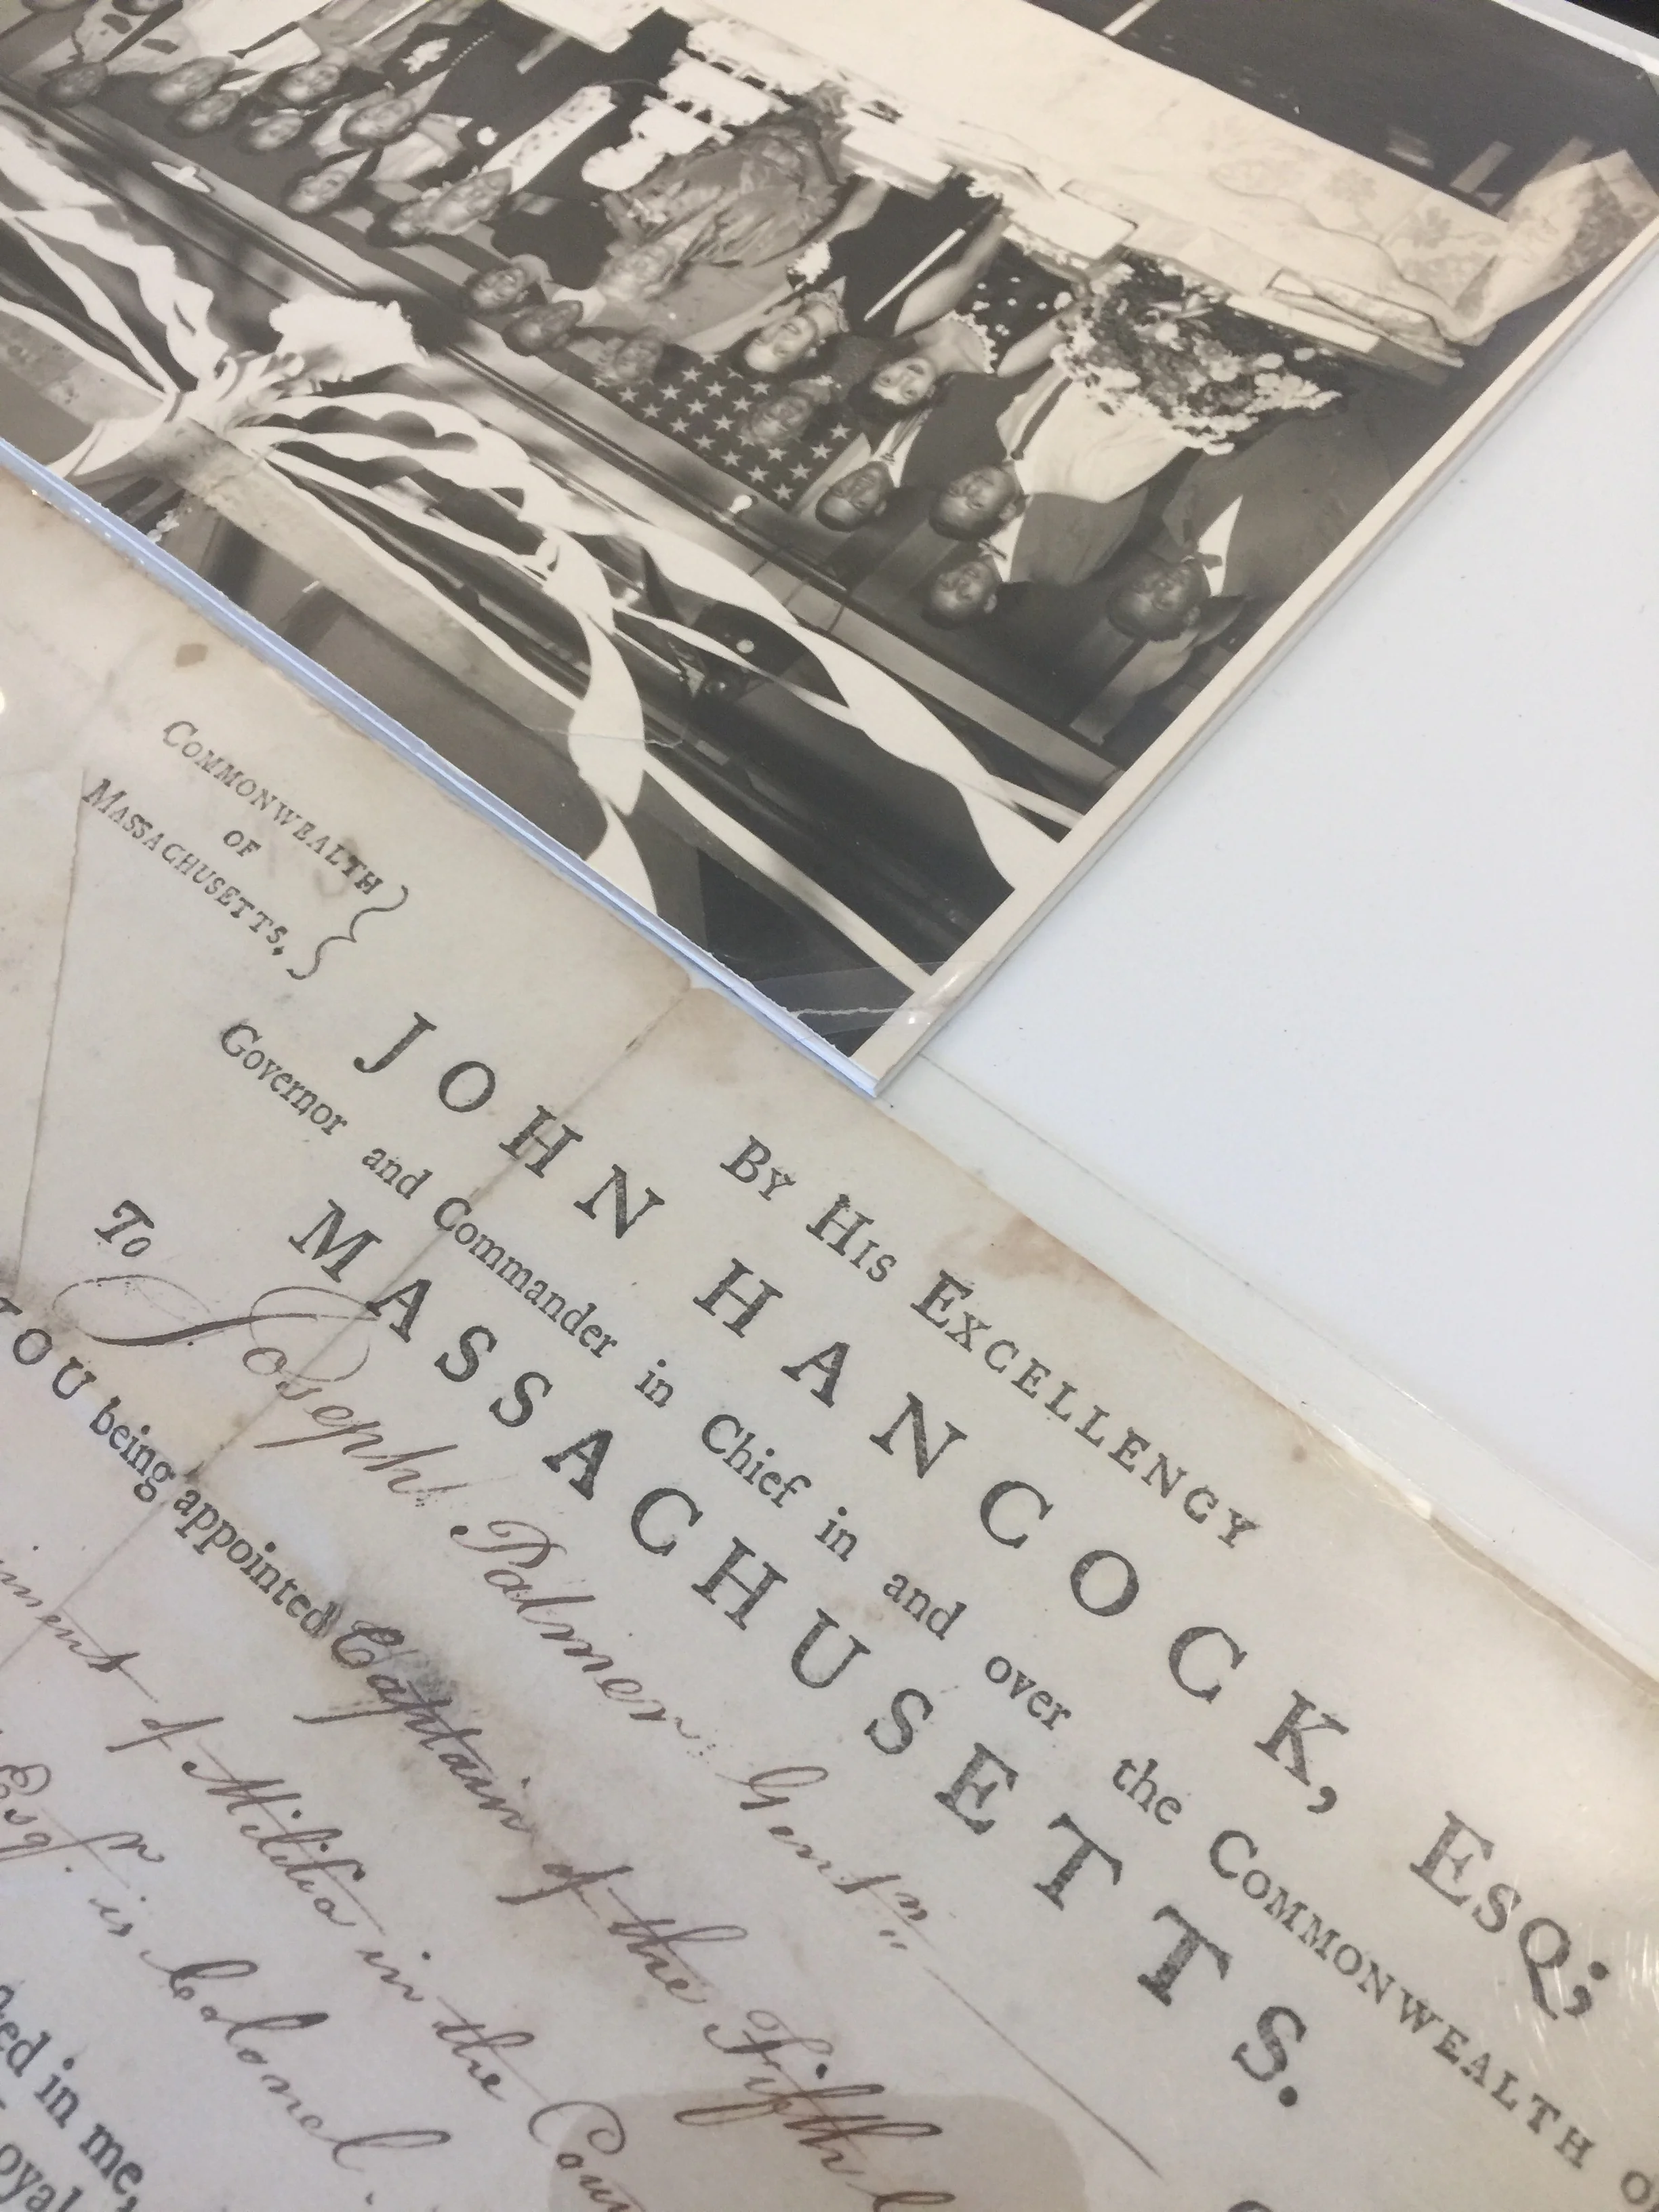 COMMONWEALTH
OF
MASSACHUSETTS,
By His EXCELLENCY
JOHN HANCOCK, ESQ;
Governor and Commander in Chief in and over the COMMONWEALTH
MASSACHUSETTS.
To Joseph Palmer Gentn
YOU being appointed Captain of the Fifth
of Militia in the
Esqr. is Colonel
in me,